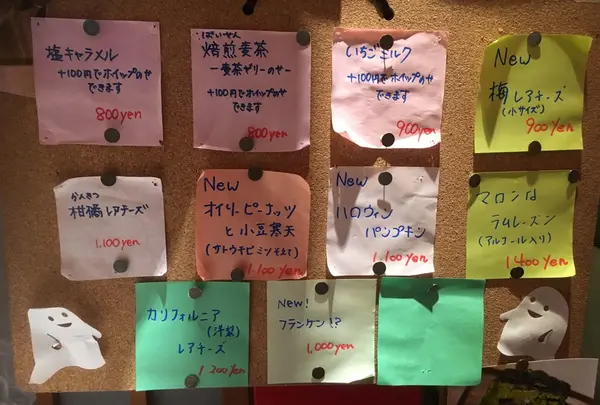 塩キャラメル
+100円でホイップのせ
できます
800yen
ばいせん
焙煎麦茶
ー麦茶ゼリーのせー
+100円でホイップのせ
できます
800yen
いちごミルク
+100円でホイップのせ
できます
900yen
New
梅レアチーズ
(小サイズ)
900yen
かんきつ
柑橘レアチーズ
1,100yen
New
オイリーピーナッツ
と小豆寒天
(サトウキビミツそえて)
1,100yen
New
ハロウィン
パンプキン
1,100yen
マロンは
ラムレーズン
(アルコール入り)
1,400yen
カリフォルニア
(洋梨)
レアチーズ
1,200yen
New!
フランケン!?
1,000yen